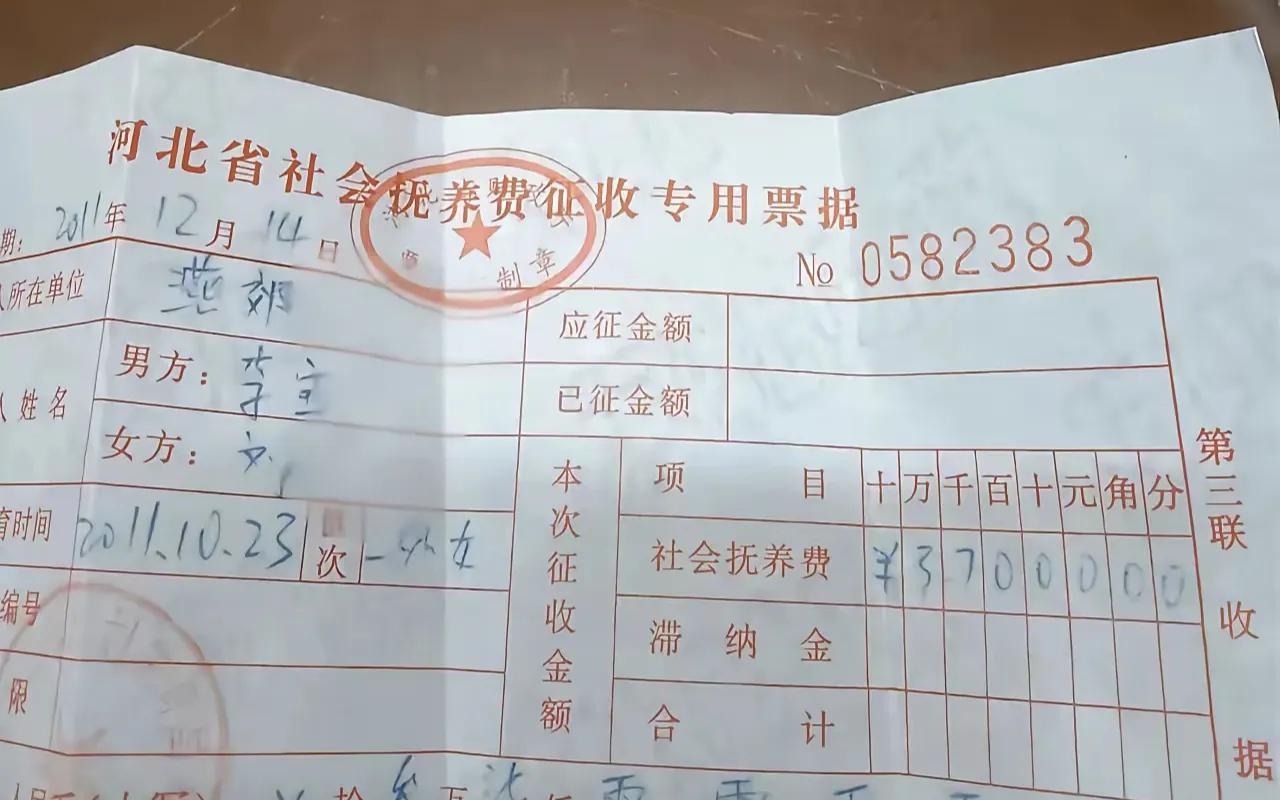 河北省社会抚养费征收专用票据
期: 2011年 12月 14日
No 0582383
制章
人所在单位 燕郊
应征金额
人姓名 男方: 李宝
已征金额
女方: 刘
本次征收金额 项目 十 万 千 百 十 元 角 分
育时间 2011.10.23 次 一外女
社会抚养费 ¥ 3 7 0 0 0 0 0
编号
滞纳金
限
合计
第三联 收据